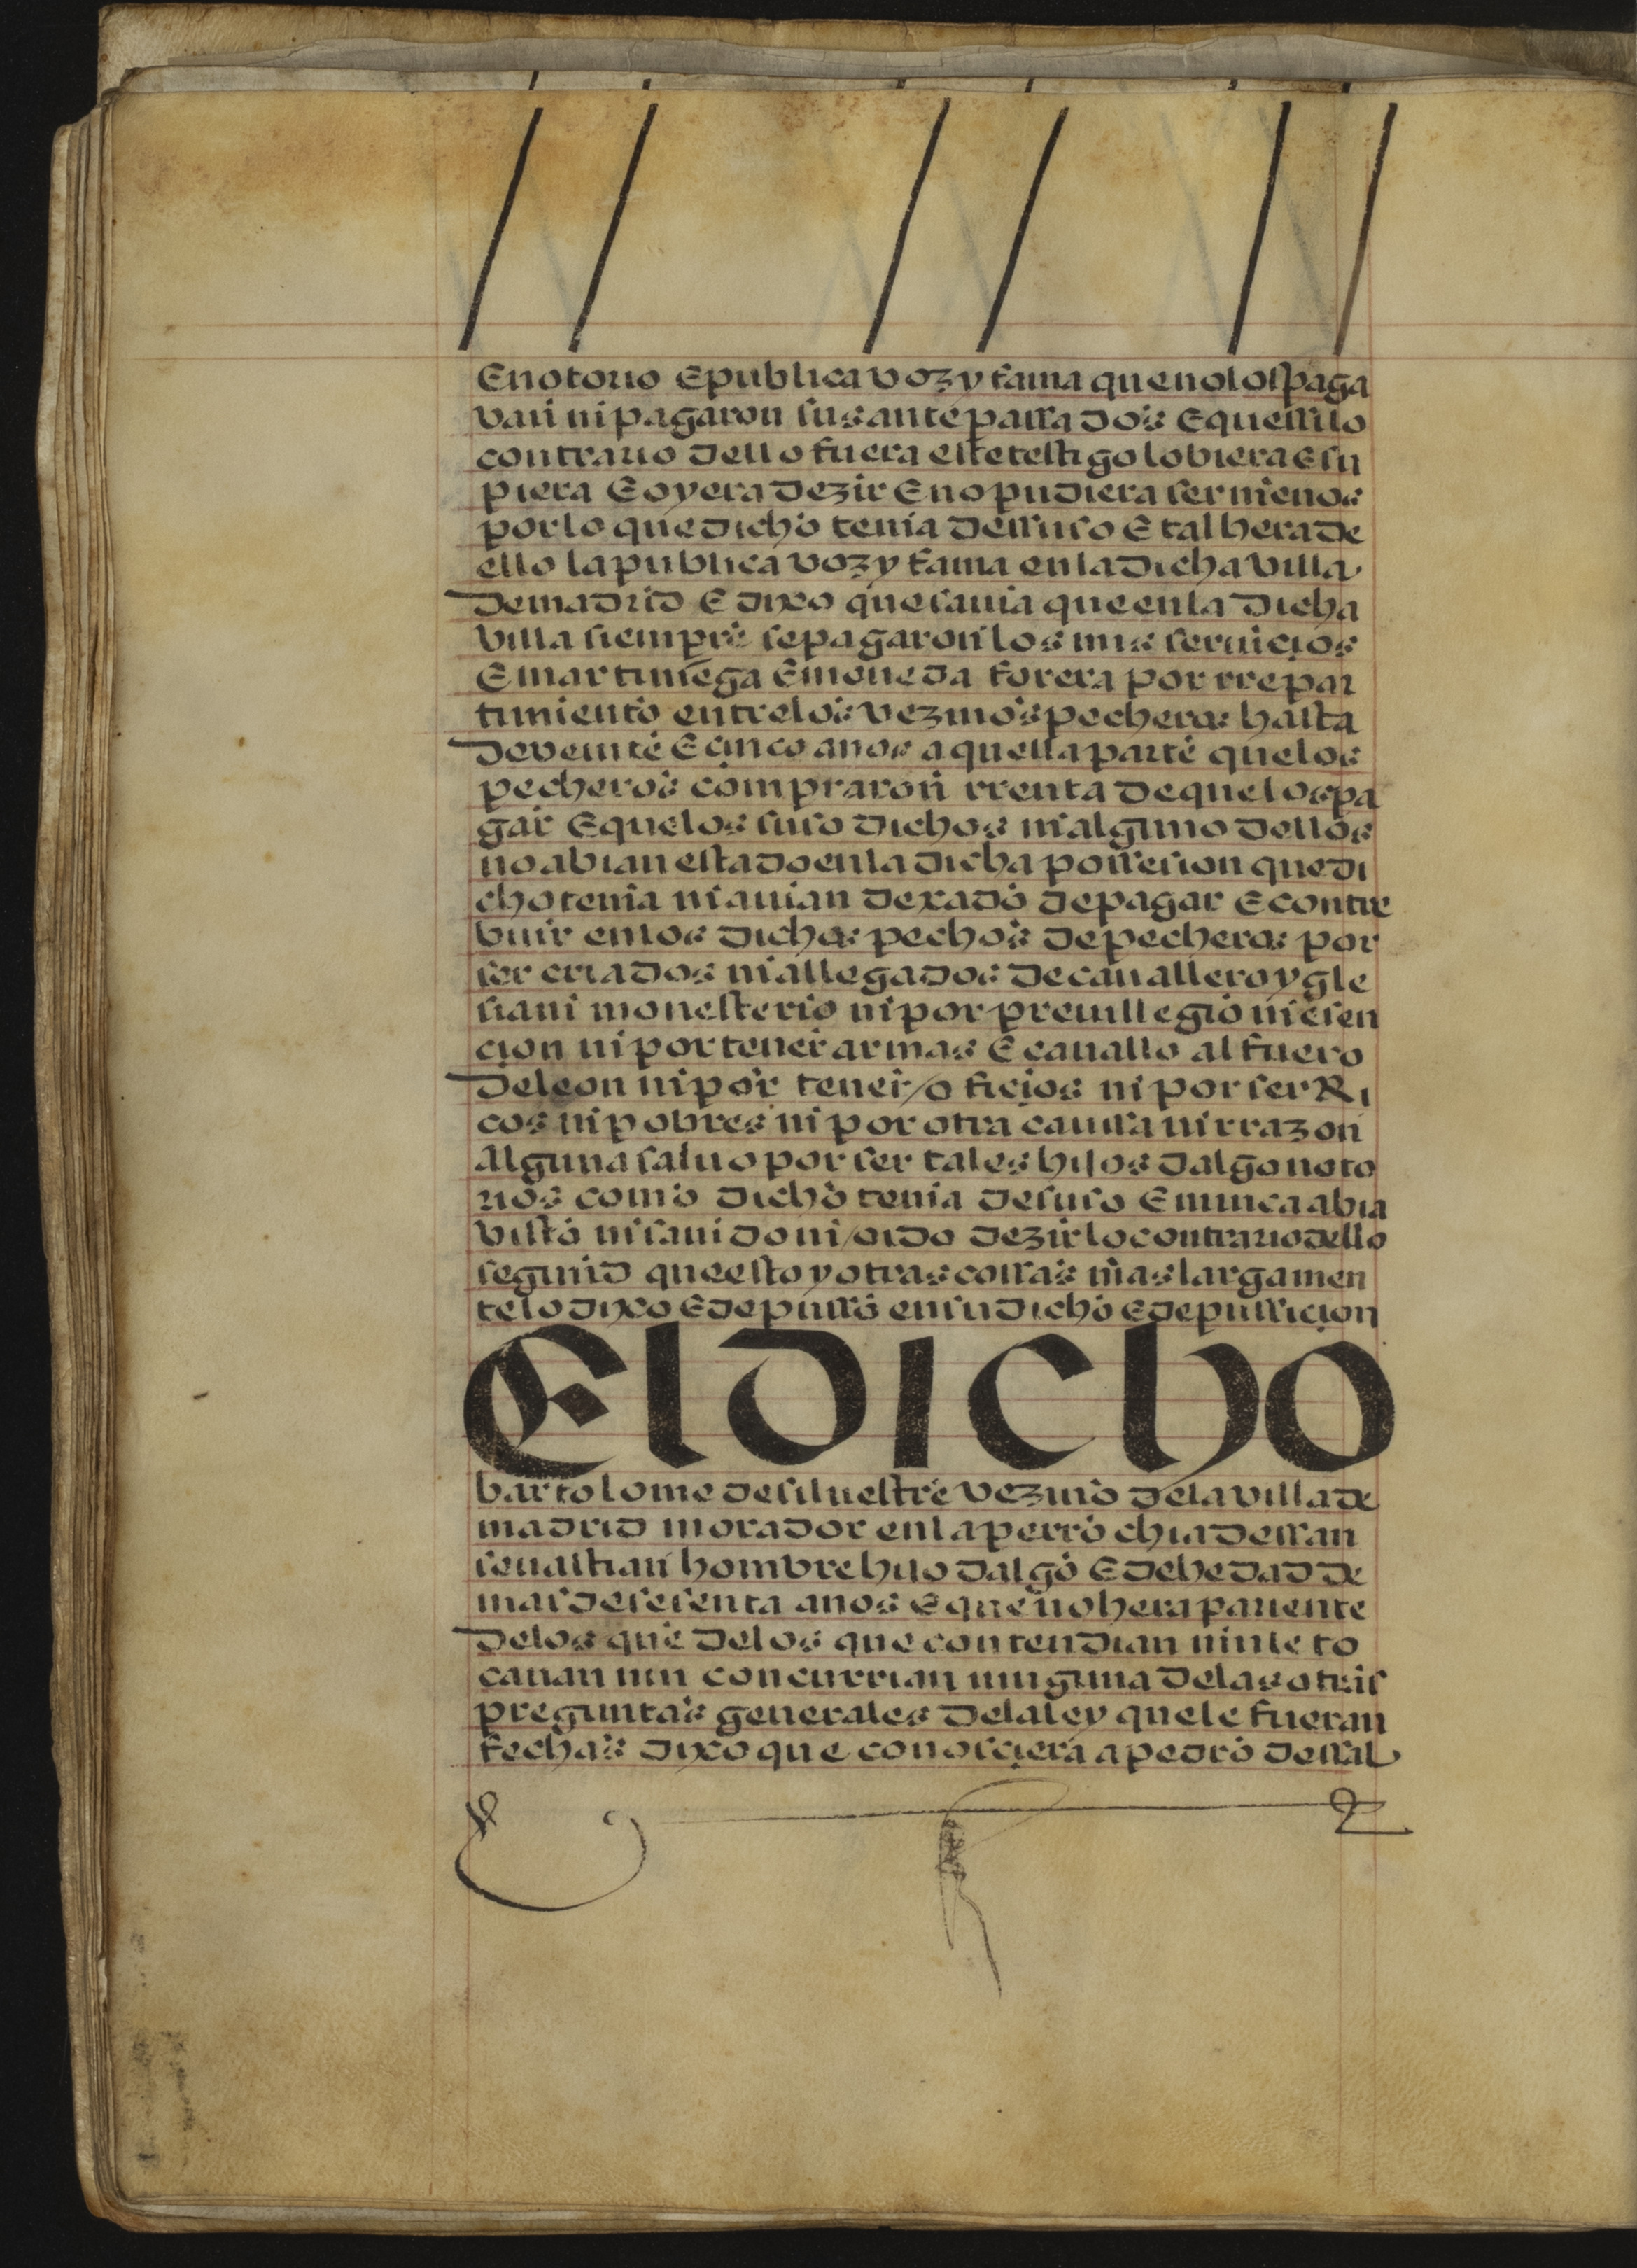 E notorio E publica voz y fama que no los paga
van ni pagaron sus antepassados E que si lo
contrario dello fuera este testigo lo biera E su
piera E oyera dezir E no pudiera ser menos
por lo que dicho tenia dessuso E tal hera de
ello la publica voz y fama en la dicha villa
de madrid E dixo que savia que en la dicha
villa siempre se pagaron los mis seruicios
E martiniega E moneda forera por rrepar
timiento entre los vezinos pecheros hasta
de veinte E cinco anos a quella parte que los
pecheros compraron rrenta de que los pa
gar E que los suso dichos ni alguno dellos
no abian estado en la dicha possesion que di
cho tenia ni auian dexado de pagar E contre
buir en los dichos pechos de pecheros por
ser criados ni allegados de cauallero ygle
sia ni monesterio ni por preuillegio ni esen
cion ni por tener armas E cauallo al fuero
de leon ni por tener/oficios ni por ser Ri
cos ni pobres ni por otra caussa ni rrazon
Alguna saluo por ser tales hijos dalgo noto
rios como dicho tenia desuso E nunca abia
visto ni sauido ni/oido dezir lo contrario dello
segund que esto y otras cossas mas largamen
te lo dixo E depusso en su dicho E depussicion
El dicho
bartolome de siluestre vezino de la villa de
madrid morador en la perrochia de ssan
seuastian hombre hijo dalgo E de hedad de
mas de sesenta anos E que no hera pariente
de los que de los que contendian nin le to
cauan nin concurrian ninguna de las otras
preguntas generales de la ley que le fueran
fechas dixo que conosciera a pedro de ssal